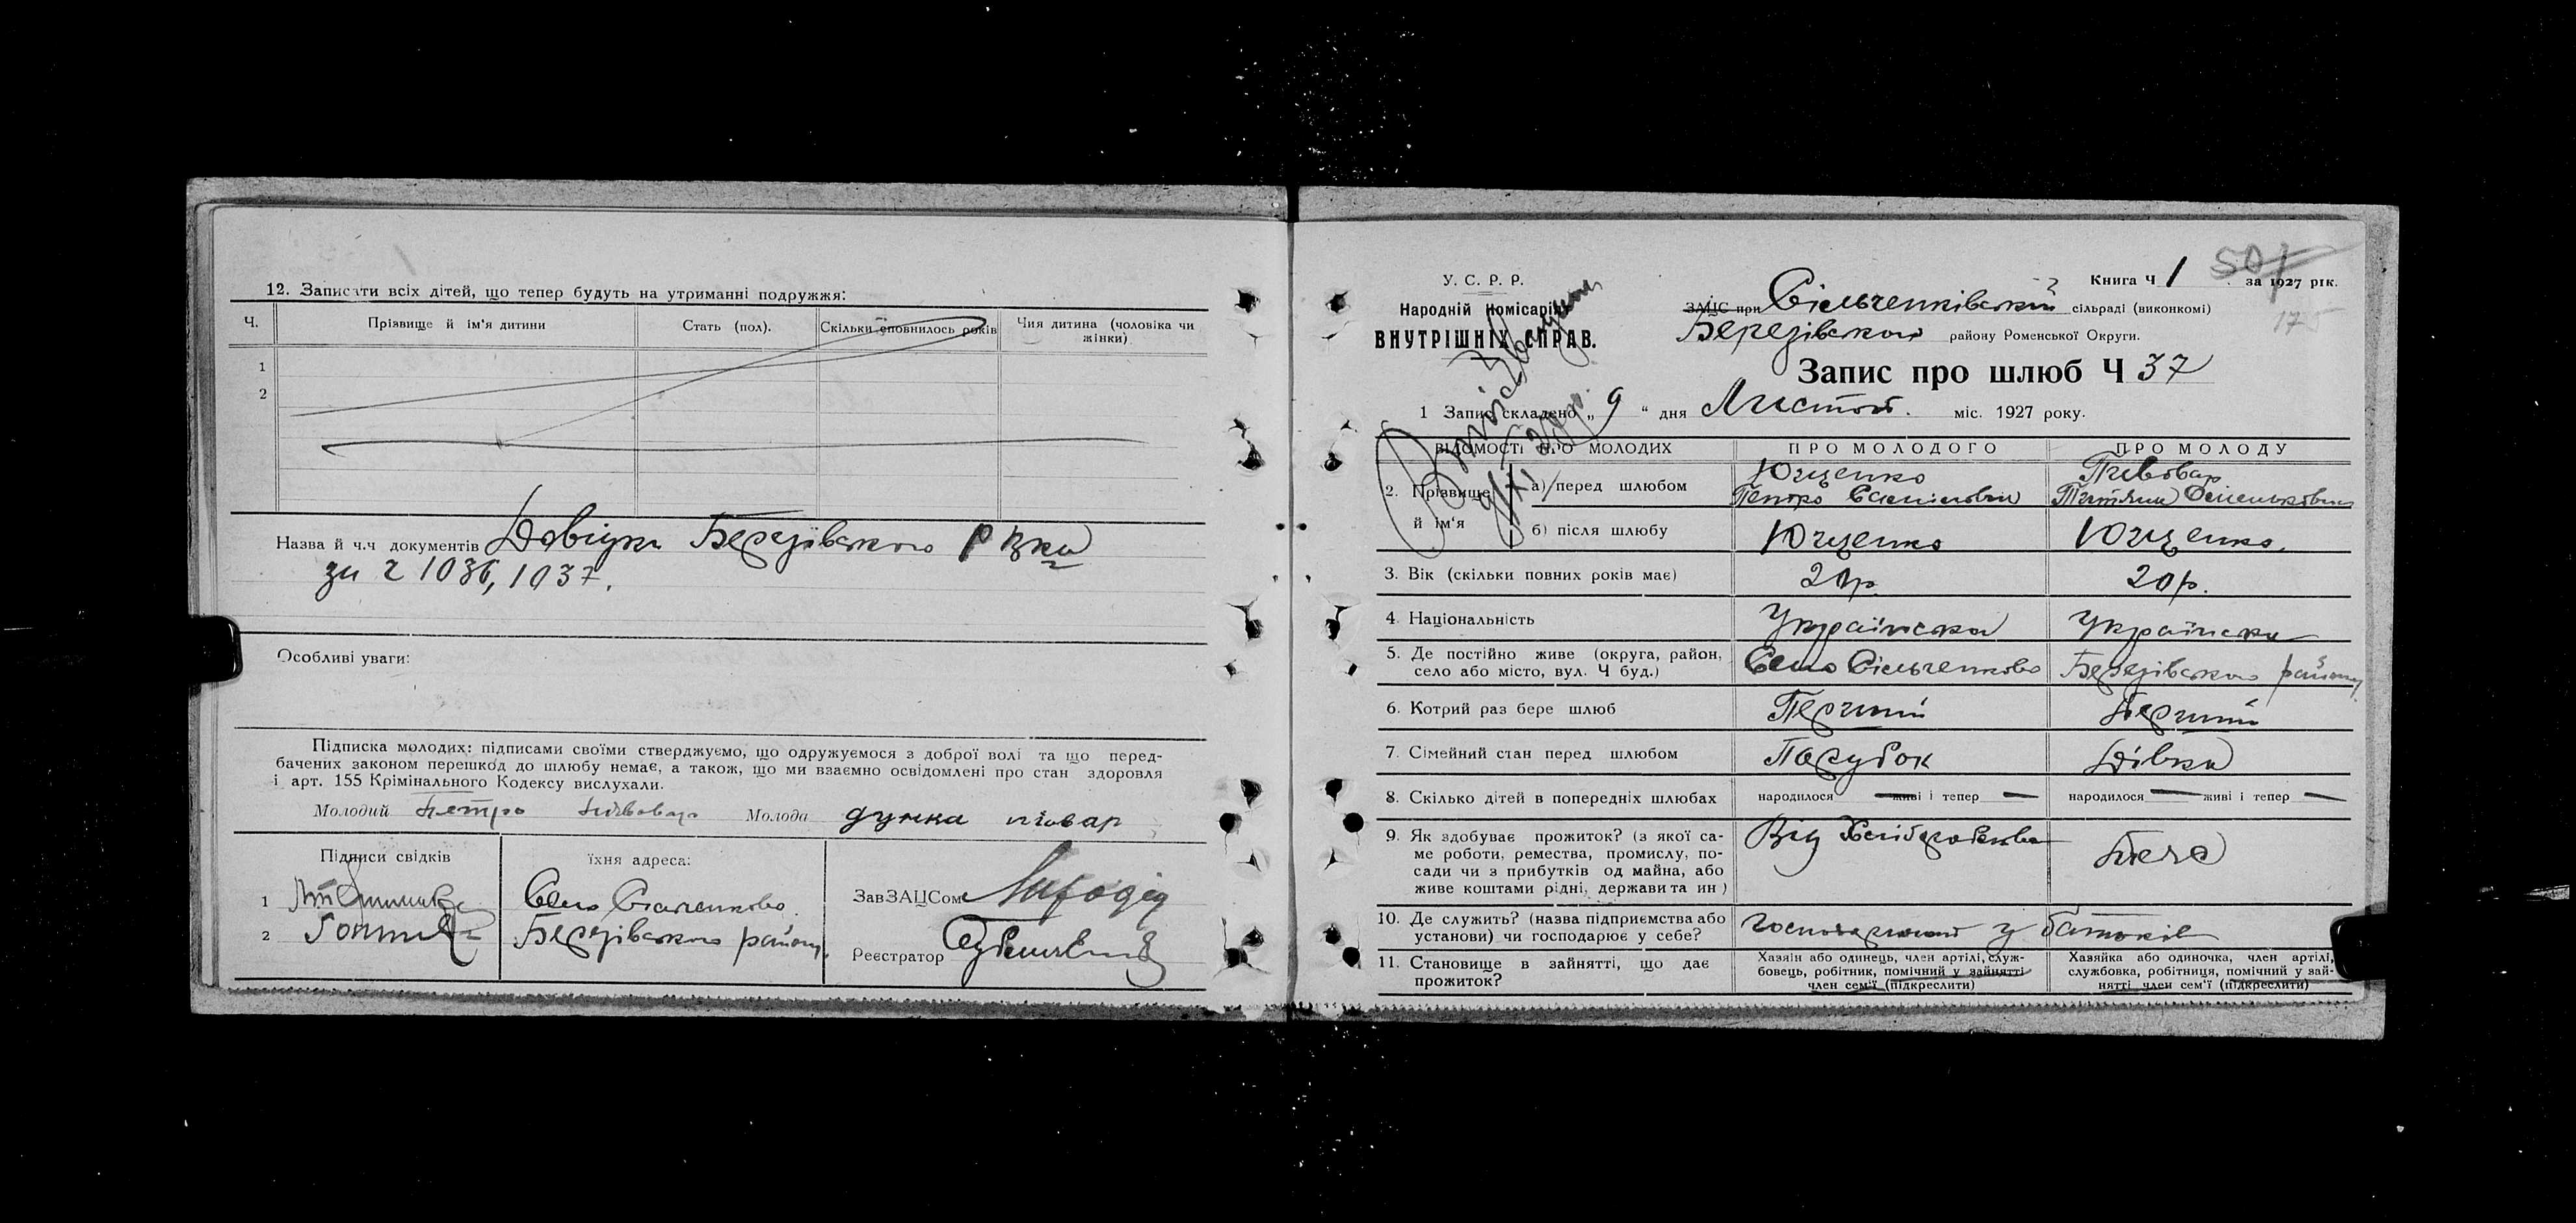 12. Записати всіх дітей, що тепер будуть на утриманні подружжя:
Ч. Прізвище й ім'я дитини Стать (пол). Скільки сповнилось років Чия дитина (чоловіка чи жінки)
1
2
Назва й ч.ч документів Довідки Березівського
за ч 1036, 1037.
Особливі уваги:
Підписка молодих: підписами своїми стверджуємо, що одружуємося з доброї волі та що перед-
бачених законом перешкод до шлюбу немає, а також, що ми взаємно освідомлені про стан здоровля
і арт. 155 Крімінального Кодексу вислухали.
Молодий Петро Молода
Підписи свідків їхня адреса:
1 Село Сільченково ЗавЗАЦСом
2 Березівського району. Реєстратор
У. С. Р. Р.
Народній Комісаріят
ВНУТРІШНІХ СПРАВ.
Книга Ч 1 за 1927 рік.
501
175
ЗАЦС при Сільченківській сільраді (виконкомі)
Березівського району Роменської Округи.
Запис про шлюб Ч 37
1 Запис складено „ 9 “ дня Листоп. міс. 1927 року.
ВІДОМОСТІ ПРО МОЛОДИХ ПРО МОЛОДОГО ПРО МОЛОДУ
2. Прізвище й ім'я
а) перед шлюбом Ющенко Петро Пивовар
б) після шлюбу Ющенко Ющенко.
3. Вік (скільки повних років має) 20р.
4. Національність Українська Українська
5. Де постійно живе (округа, район, село або місто, вул. Ч буд.) Село Сільченково Березівського району
6. Котрий раз бере шлюб Перший Перший
7. Сімейний стан перед шлюбом Парубок Дівка
8. Скілько дітей в попередніх шлюбах народилося — живі і тепер — народилося — живі і тепер —
9. Як здобуває прожиток? (з якої са-
ме роботи, ремества, промислу, по-
сади чи з прибутків од майна, або
живе коштами рідні, держави та ин)
Від Хліборобства
10. Де служить? (назва підприємства або
установи) чи господарює у себе?
у батьків
11. Становище в зайнятті, що дає
прожиток?
Хазяін або одинець, член артілі, служ-
бовець, робітник, помічний у зайнятті
член сем'ї (підкреслити)
Хазяйка або одиночка, член артілі,
службовка, робітниця, помічний у зай-
нятті член сем'ї (підкреслити)